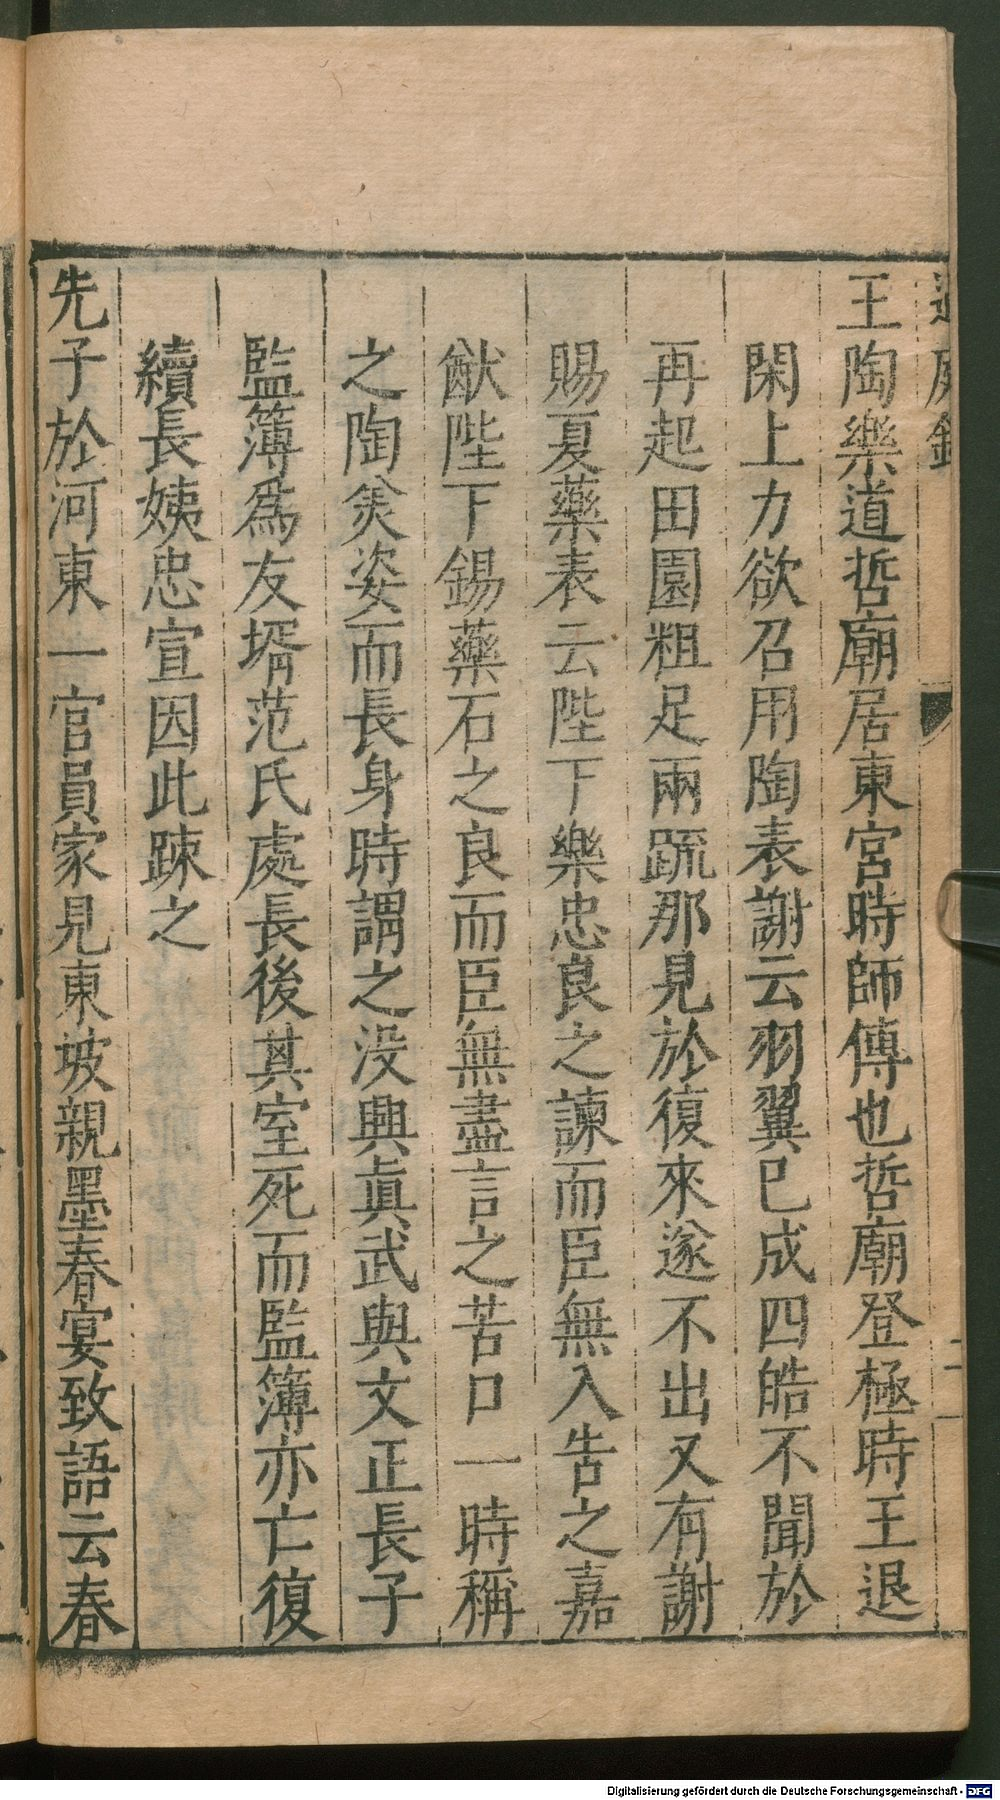 王陶樂道哲廟居東宮時師傅也哲廟登極時王退
閑上力欲召用陶表謝云羽翼已成四皓不聞於
再起田園粗足兩䟽那見於復來遂不出又有謝
賜夏藥表云陛下樂忠良之諫而臣無入告之嘉
猷陛下錫藥石之良而臣無盡言之苦口一時稱
之陶美姿而長身時謂之没興眞武與文正長子
監簿爲友壻范氏處長後其室死而監簿亦亡復
續長姨忠宣因此踈之
先子於河東一官員家見東坡親墨春宴致語云春
Digitalisierung gefördert durch die Deutsche Forschungsgemeinschaft - DFG